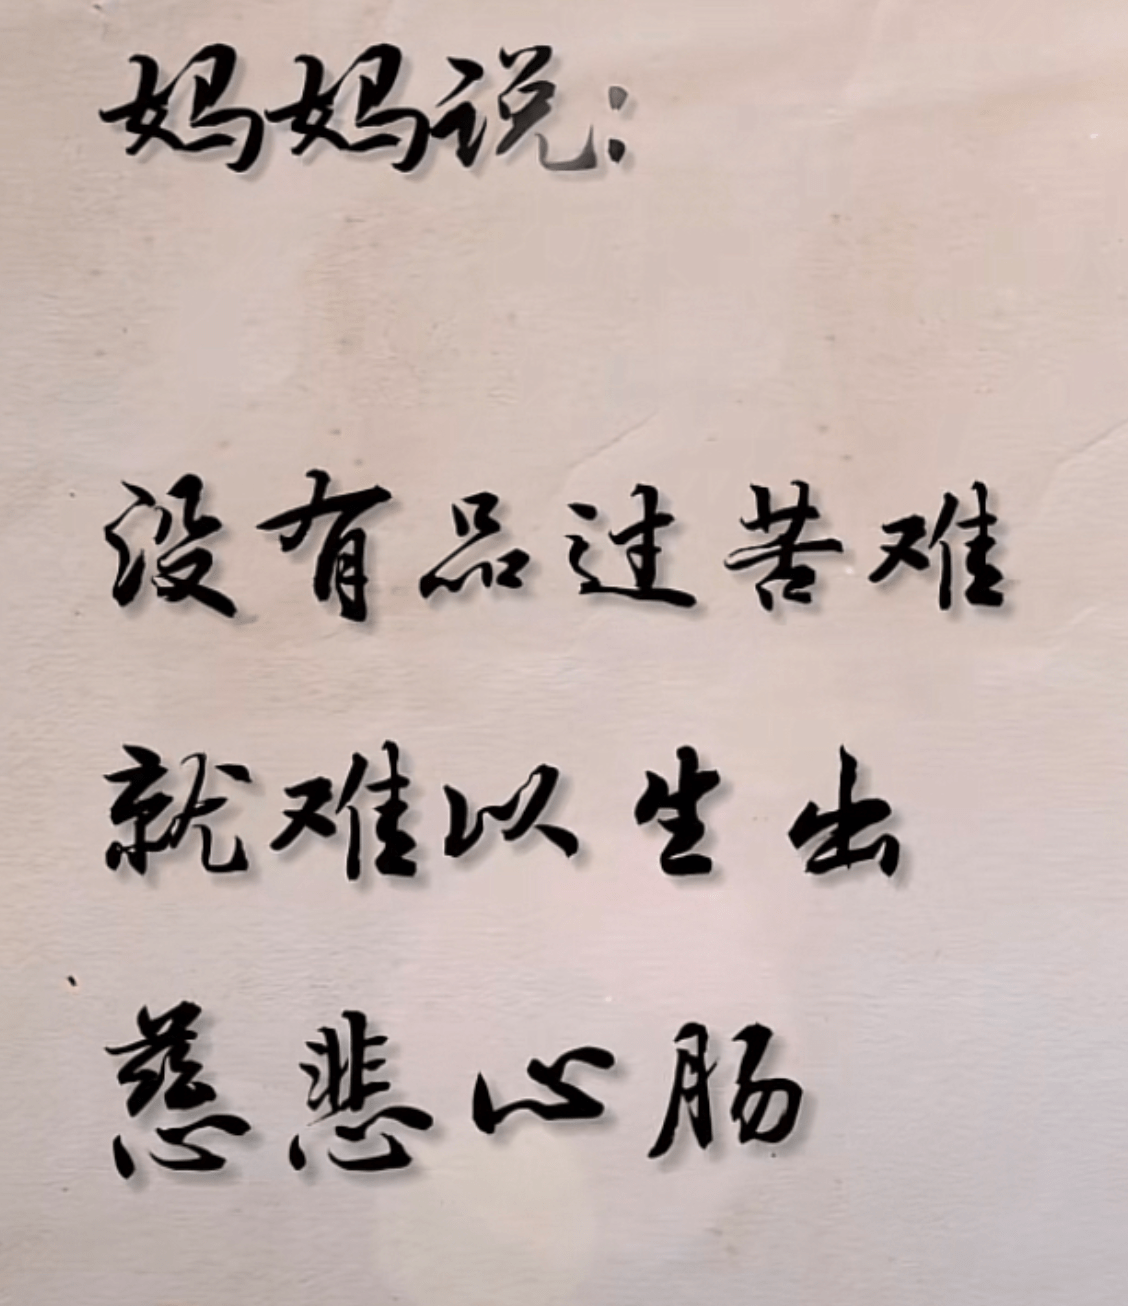 妈妈说:
没有品过苦难
就难以生出
慈悲心肠